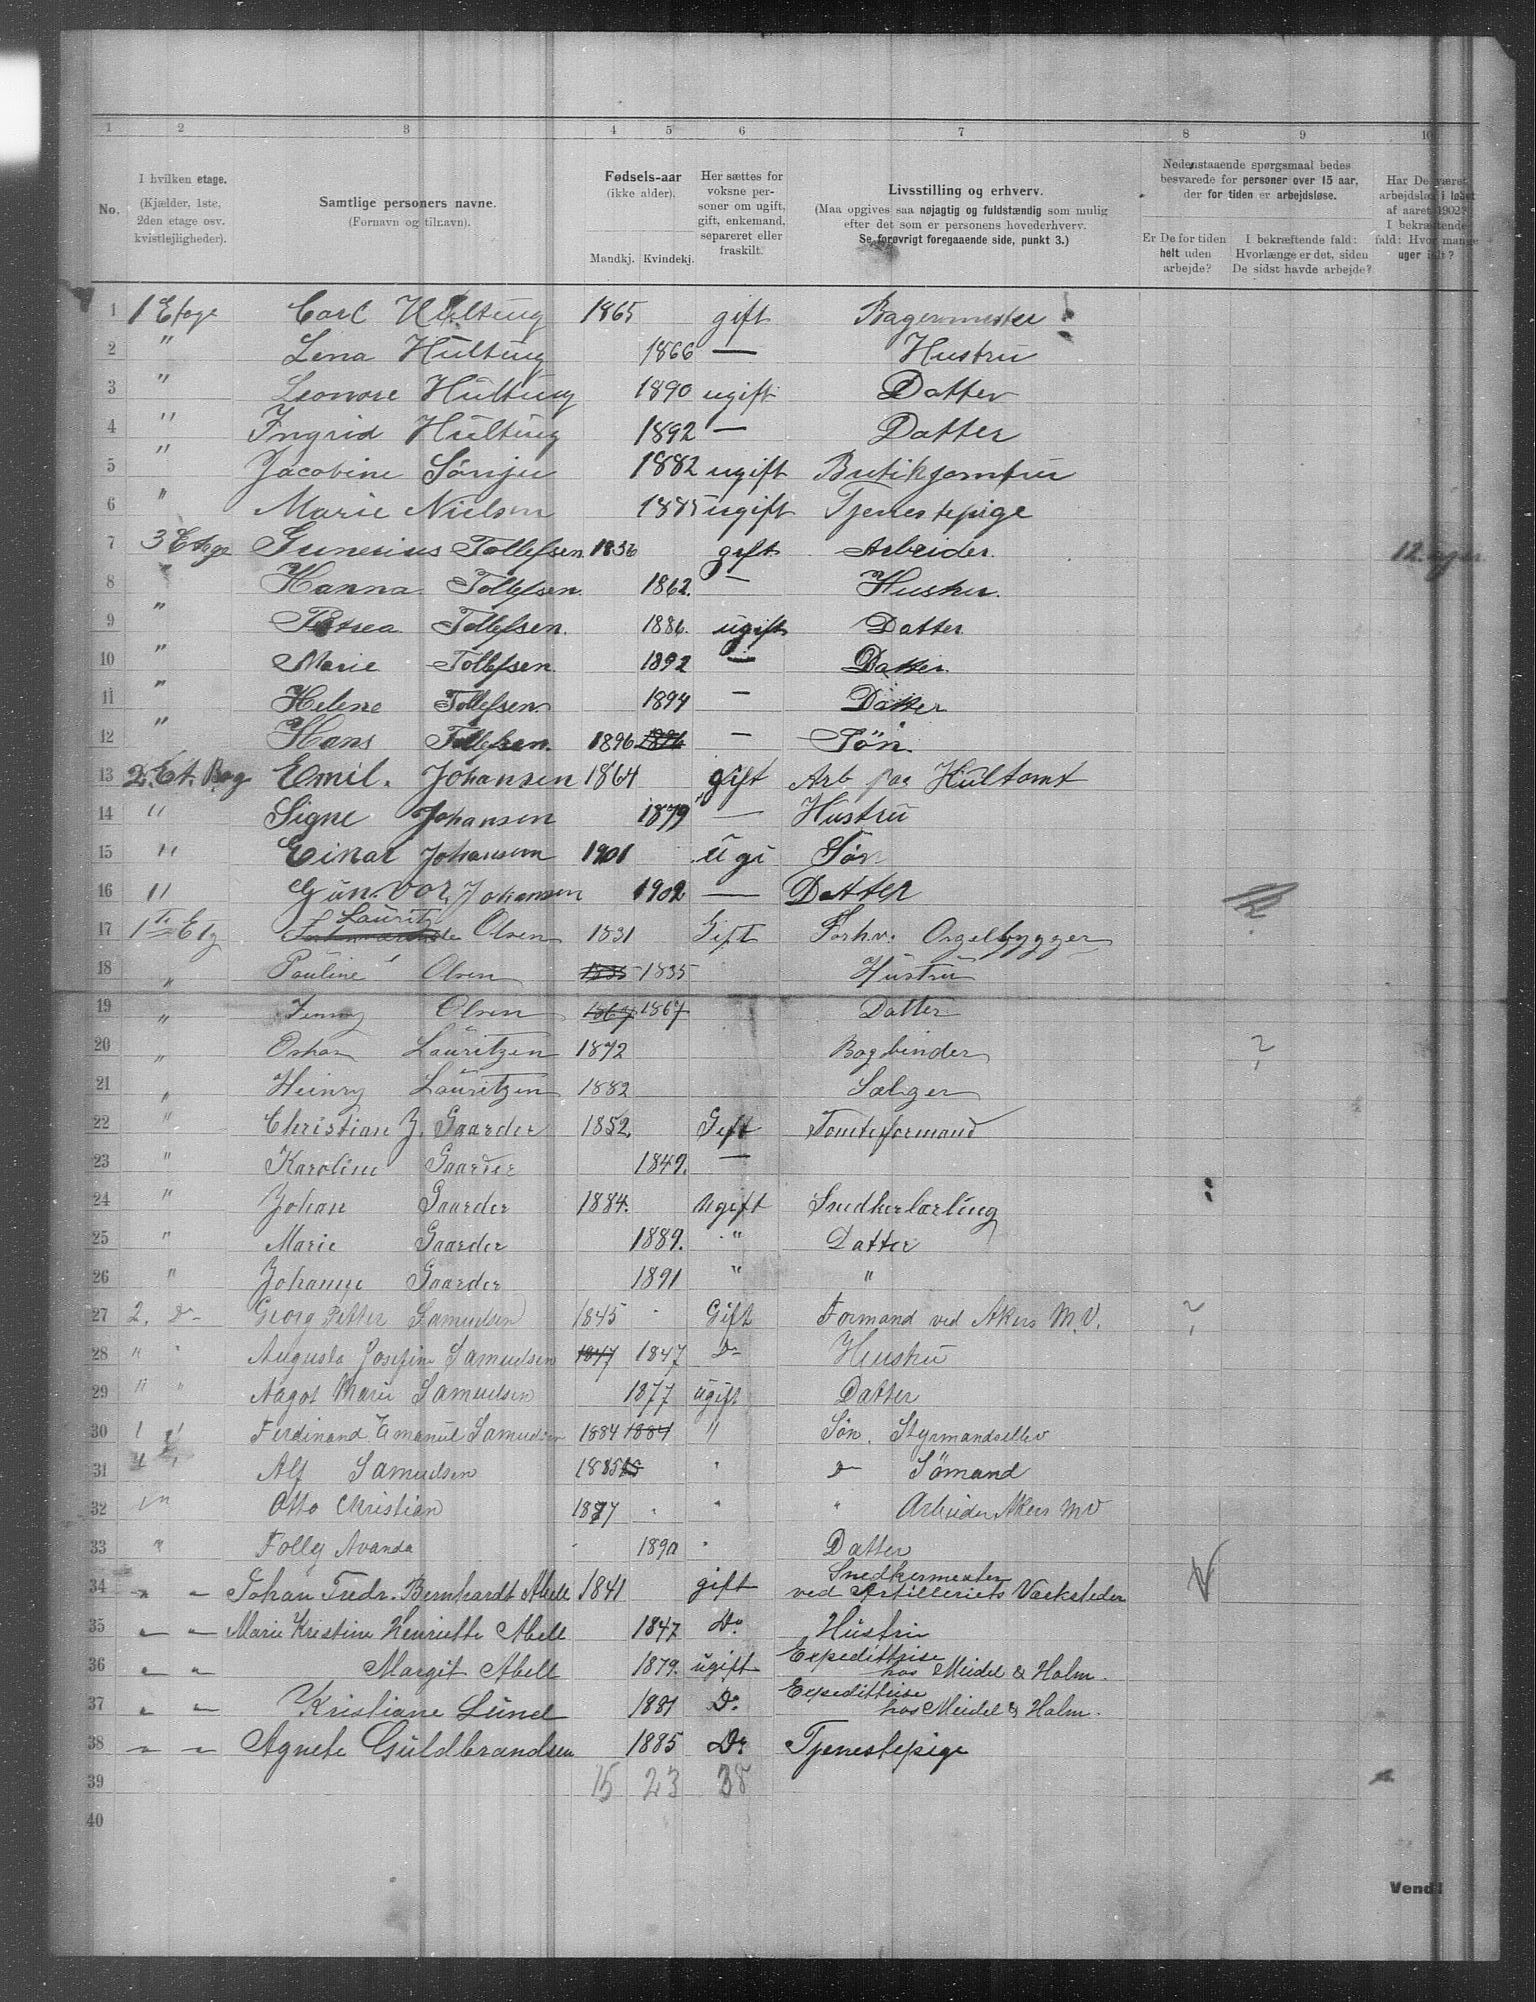 1 2 3 4 5 6 7 8 9 10
No.
I hvilken etage.
(Kjælder, 1ste,
2den etage osv.
kvistlejligheder).
Samtlige personers navne.
(Fornavn og tilnavn).
Fødsels-aar
(ikke alder).
Mandkj. Kvindekj.
Her sættes for
voksne per-
soner om ugift,
gift, enkemand,
separeret eller
fraskilt.
Livsstilling og erhverv.
(Maa opgives saa nøjagtig og fuldstændig som mulig
efter det som er personens hovederhverv.
Se forøvrigt foregaaende side, punkt 3.)
Nedenstaaende spørgsmaal bedes
besvarede for personer over 15 aar,
der for tiden er arbejdsløse.
Er De for tiden
helt uden
arbejde?
I bekræftende fald:
Hvorlænge er det, siden
De sidst havde arbejde?
Har De været
arbejdsløs i løbet
af aaret 1902?
I bekræftende
fald: Hvor mange
uger ialt?
1 1 Etage Carl Hultung 1865 gift Bagermester
2 " Lena Hultung 1866 — Hustru
3 " Leonore Hultung 1890 ugift Datter
4 " Ingrid Hultung 1892 — Datter
5 " Jacobine Sønju 1882 ugift Butikjomfru
6 " Marie Nielsen 1885 ugift Tjenestepige
7 3 Etage Gunerius Tollefsen 1856 gift Arbeider 12 uger
8 " Hanna Tollefsen 1862. — Hustru.
9 " Tollefsen. 1886. ugift Datter
10 " Marie Tollefsen 1892 — Datter
11 " Helene Tollefsen 1894 — Datter
12 " Hans Tollefsen. 1896 1896 — Søn.
13 2. Et. Bag Emil. Johansen 1864 gift Arb paa Hultomt
14 " Signe Johansen 1879 — Hustru
15 " Einar Johansen 1901 ugi Søn
16 " Gunvor, Johansen 1902 — Datter
17 1te Etg Lauritz Olsen 1831 Gift Forhv. Orgelbygger
18 " Pauline Olsen 1835 1835 Hustru
19 " Jenny Olsen 1867 1867 Datter
20 " Oskar Lauritzen 1872 Bogbinder ?
21 " Heinry Lauritzen 1882 Sælger
22 " Christian J. Gaarder 1852. Gift Tomteformand
23 " Karoline Gaarder 1849. —
24 " Johan Gaarder 1884. Ugift Snedkerlærling
25 " Marie Gaarder 1889. " Datter
26 " Johanne Gaarder 1891 " "
27 2. Do Georg Petter Samuelsen 1845 Gift Formand ved Akers M.V. ?
28 " " Augusta Josefine Samuelsen 1847 1847 Do Hustru
29 " " Aagot Marie Samuelsen 1877 ugift Datter
30 " " Ferdinand Emanuel Samuelsen 1884 1884 " Søn. Styrmandselev
31 " " Alf Samuelsen 1885 85 " Do Sømand
32 " " Otto Christian 1887 " " Arbeider Akers M V
33 " Folly Avanda 1890 " Datter
34 " " Johan Fredr. Bernhardt Abell 1841 gift Snedkermester
ved Artilleriets Værksteder
35 " " Marie Kristine Henriette Abell 1847 Do Hustru
36 " " Margit Abell 1879. ugift Expeditrise
hos Meidel & Holm.
37 " " Kristiane Lund 1881 Do Expeditrise
hos Meidel & Holm.
38 " " Agnete Guldbrandsen 1885 Do Tjenestepige
39 15 23 38
40
Vend!